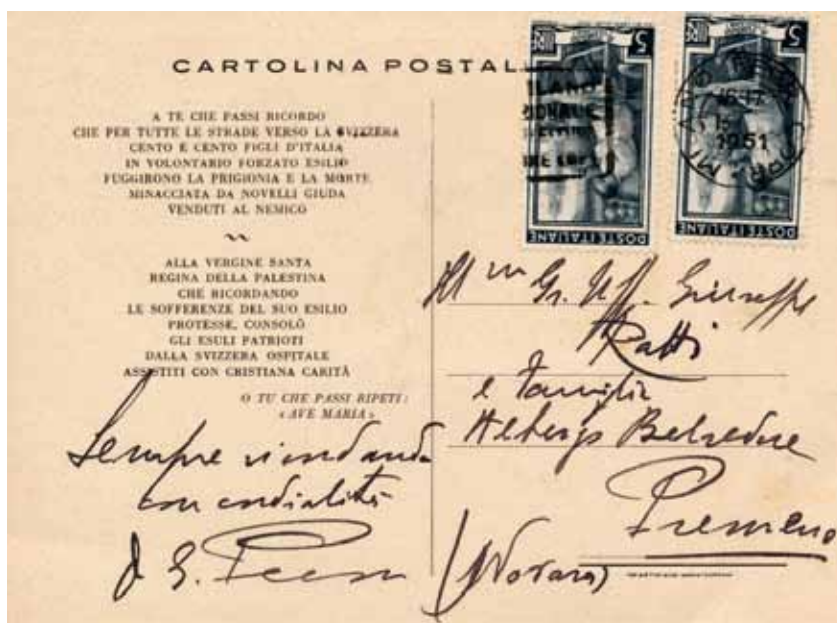 CARTOLINA POSTAL
A TE CHE PASSI RICORDO
CHE PER TUTTE LE STRADE VERSO LA SVIZZERA
CENTO E CENTO FIGLI D'ITALIA
IN VOLONTARIO FORZATO ESILIO
FUGGIRONO LA PRIGIONIA E LA MORTE
MINACCIATA DA NOVELLI GIUDA
VENDUTI AL NEMICO
ALLA VERGINE SANTA
REGINA DELLA PALESTINA
CHE RICORDANDO
LE SOFFERENZE DEL SUO ESILIO
PROTESSE, CONSOLÒ
GLI ESULI PATRIOTI
DALLA SVIZZERA OSPITALE
ASSISTITI CON CRISTIANA CARITÀ
O TU CHE PASSI RIPETI:
« AVE MARIA »
Sempre ricordando
con cordialità
5
POSTE ITALIANE
5
POSTE ITALIANE
16-17
1951
Gr. Uff. Giuseppe
Ratti
e famiglia
Albergo Belvedere
Premeno
(Novara)